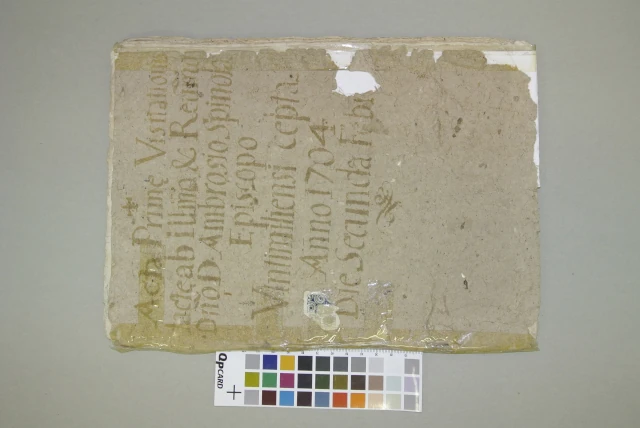 Acta Prime Visitationis
Indicæ ab illma & Reuma
Dño D. Ambrosio Spinola
Episcopo
Vintimiliensi cepta
Anno 1704
Die Secunda Feb
QpCARD